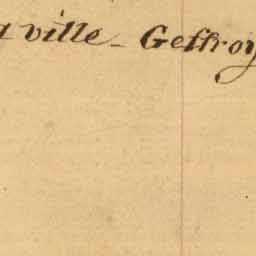 a ville - Geffroy